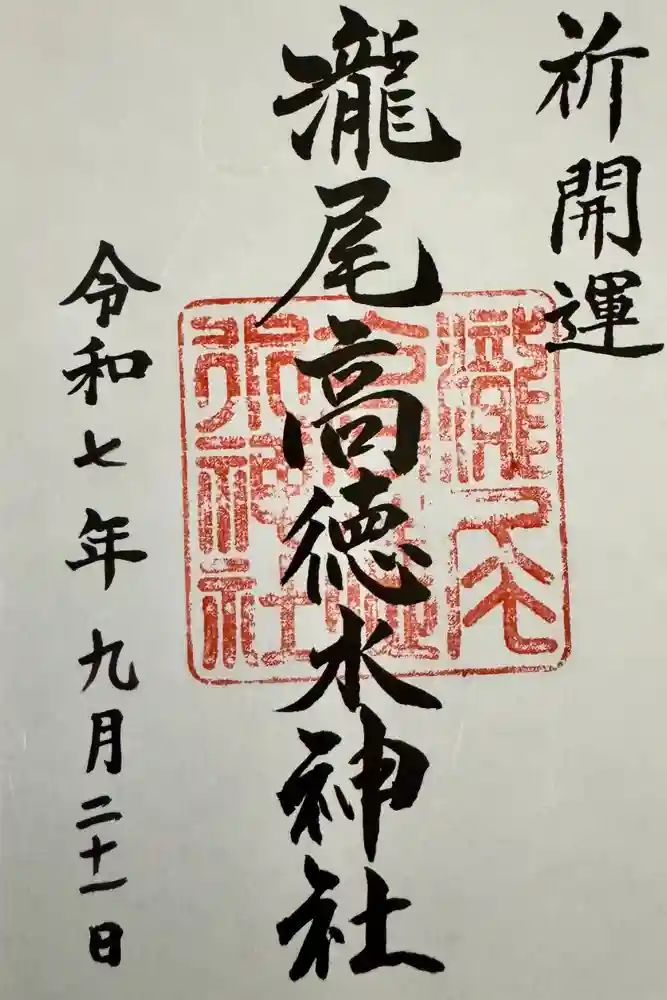 祈開運
瀧尾高徳水神社
瀧尾
高徳
水神社
令和七年九月二十一日